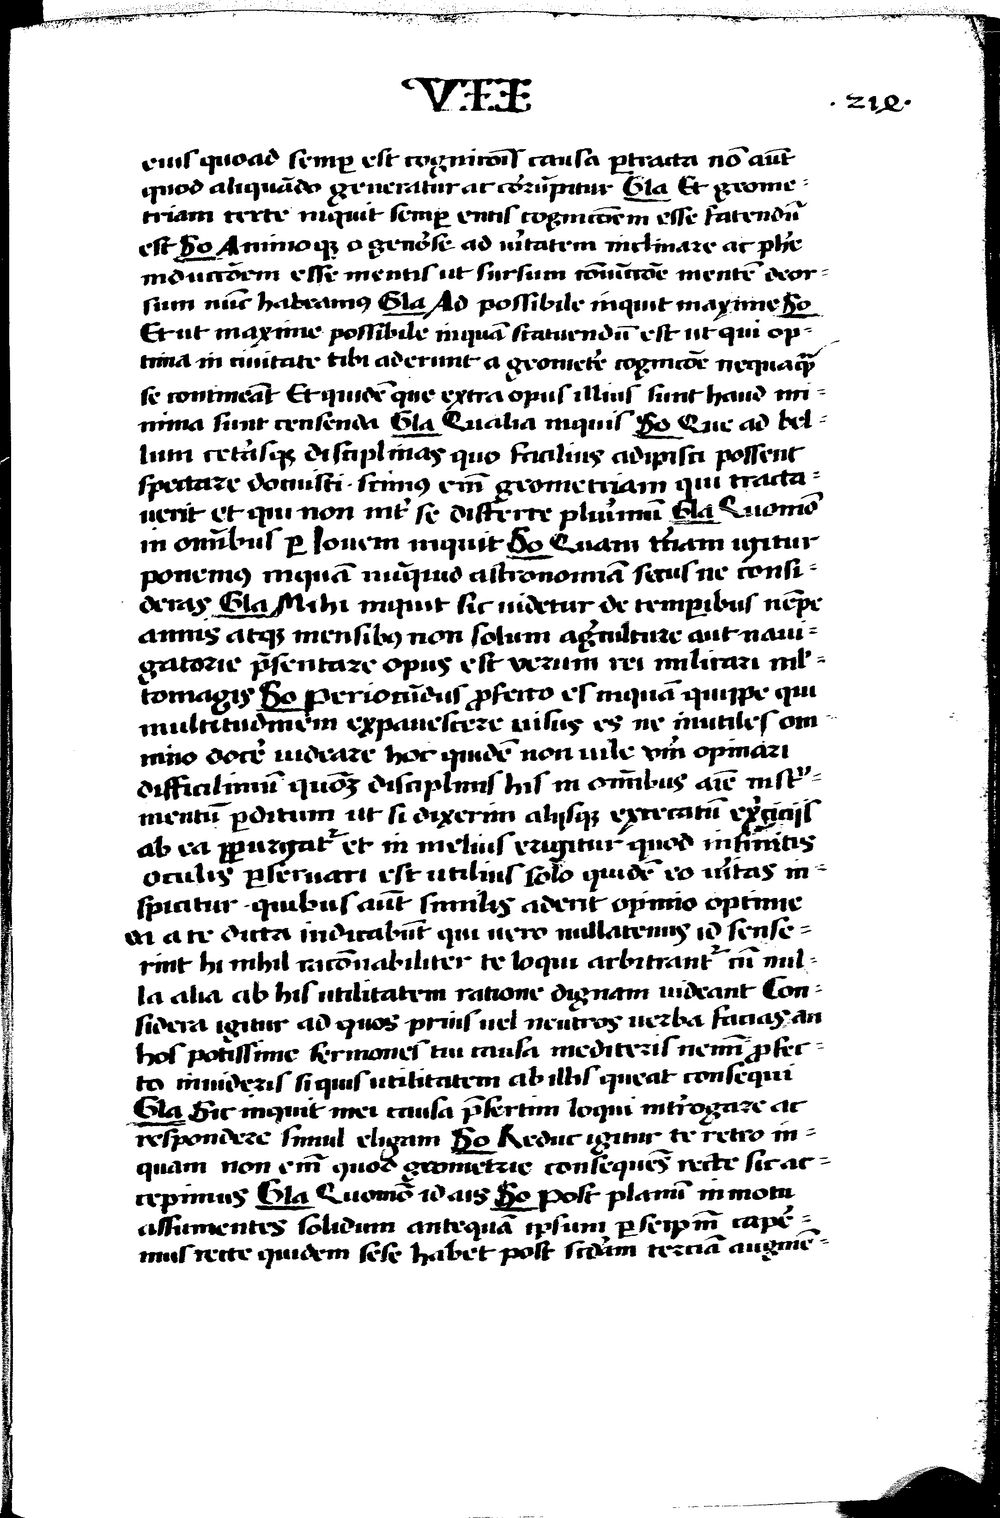 VII
.219.
eius quoad semꝑ est cognicōīs causa ꝑtracta nō aūt
quod aliquādo generatur ac corrūpitur Gla Et geome-
triam certe inquit semꝑ entis cognicōem esse fatendū
est So Animoqꝫ o genōse ad ūitatem inclinare ac phīe
inductōem esse mentis ut sursum cōiūctōe mentē deor-
sum nūc habeamꝰ Gla Ad possibile inquit maxime So
Et ut maxime possibile inquā statuendū est ut qui op-
tima in ciuitate tibi aderunt a geometrīe cognicōe nequaqā
se contineāt Et quidē que extra opus illius sunt haud mi-
nima sunt censenda Gla Qualia inquis So Que ad bel-
lum ceterasqꝫ disciplinas quo facilius adipisci possent
spectare docuisti. scimꝰ em̄ geometriam qui tracta-
uerit et qui non int̄ se differre plurimū Gla Quomō
in om̄ibus ꝑ Iouem inquit So Quam t̄ciam igitur
ponemꝰ inquā nūquid astronomiā secus ne consi-
deras Gla Mihi inquit sic uidetur de temꝑibus nēpe
annis atqꝫ mensibꝰ non solum agriculture aut naui-
gatorie p̄sentare opus est verum rei militari nil-
tomagis So Periocūdus ꝓfecto es inquā quippe qui
multitudinem expauescere uisus es ne inutiles om
nino docē uideare hoc quidē non uile vm̄ opinari
difficilimū quoqꝫ disciplinis his in om̄ibus aīe instr̄-
mentū ꝑditum ut si dixerim alijsqꝫ excecatū ex̄cicijs
ab ea ꝑpurgat᷑ et in melius erigitur quod infinitis
oculis ꝑseruari est utilius solo quidē eo ūitas in-
spicitur. quibus aūt similis aderit opinio optime
a te dicta indicabūt qui uero nullatenus id sense-
rint hi nihil racōnabiliter te loqui arbitrant᷑ cū nul-
la alia ab his utilitatem ratione dignam uideant Con-
sidera igitur ad quos prius uel neutros uerba facias an
hos potissime sermones tui causa mediteris nemī ꝓfec-
to inuideris si quis utilitatem ab illis queat consequi
Gla Sic inquit mei causa p̄sertim loqui int̄rogare ac
respondere simul eligam So Reduc igitur te retro in-
quam non em̄ quod geometrie consequēs recte sic ac-
cepimus Gla Quomō id ais So Post planū in motu
assumentes solidum antequā ipsum ꝑ seipm̄ capē-
mus recte quidem sese habet post secdam terciā augmē-